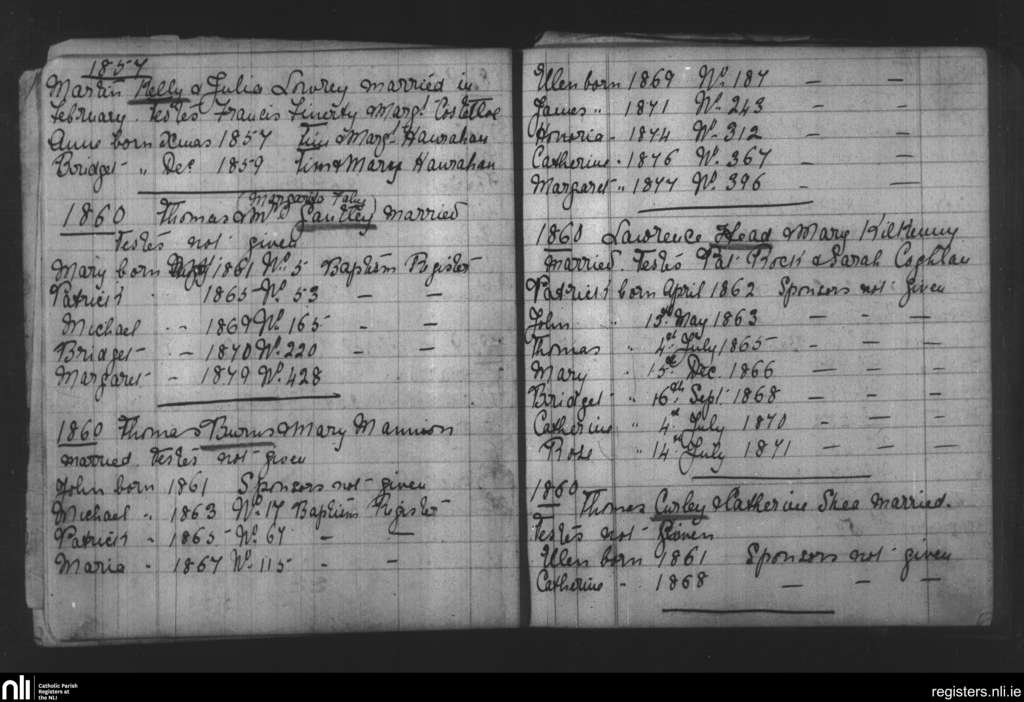 1857
Martin Kelly & Julia Lowrey married in
February. Testes Francis Finerty Margt Costelloe
Anne born Xmas 1857 Tim & Marg. Hanrahan
Bridget " Dec. 1859 Tim & Mary Hanrahan
(Margarita Fahy)
1860 Thomas & Mgt Gautley married
Testes not given
Mary born 1861 No. 5 Baptism Register
Patrick " 1865 No. 53 — —
Michael " 1869 No. 165 — —
Bridget — 1870 No. 220 — —
Margaret — 1879 No. 428
1860 Thomas Burns & Mary Mannion
married. Testes not given
John born 1861 Sponsors not given
Michael " 1863 No. 17 Baptism Register
Patrick " 1865 No. 67 — —
Maria " 1867 No. 115 — —
Ellen born 1869 No. 187 — —
James " 1871 No. 243 — —
Honoria " 1874 No. 312 — —
Catherine " 1876 No. 367 — —
Margaret " 1877 No. 396 — —
1860 Lawrence Head & Mary Kilkenny
married. Testes Pat Rock & Sarah Coghlan
Patrick born April 1862 Sponsors not given
John " 13th May 1863 — — —
Thomas " 4th July 1865 — — —
Mary " 15th Dec. 1866 — — —
Bridget " 16th Sept. 1868 — — —
Catherine " 4th July 1870 — — —
Rose " 14th July 1871 — — —
1860 Thomas Curley & Catherine Shea married.
Testes not given
Ellen born 1861 Sponsors not given
Catherine " 1868 — — —
nli
Catholic Parish
Registers at
the NLI
registers.nli.ie